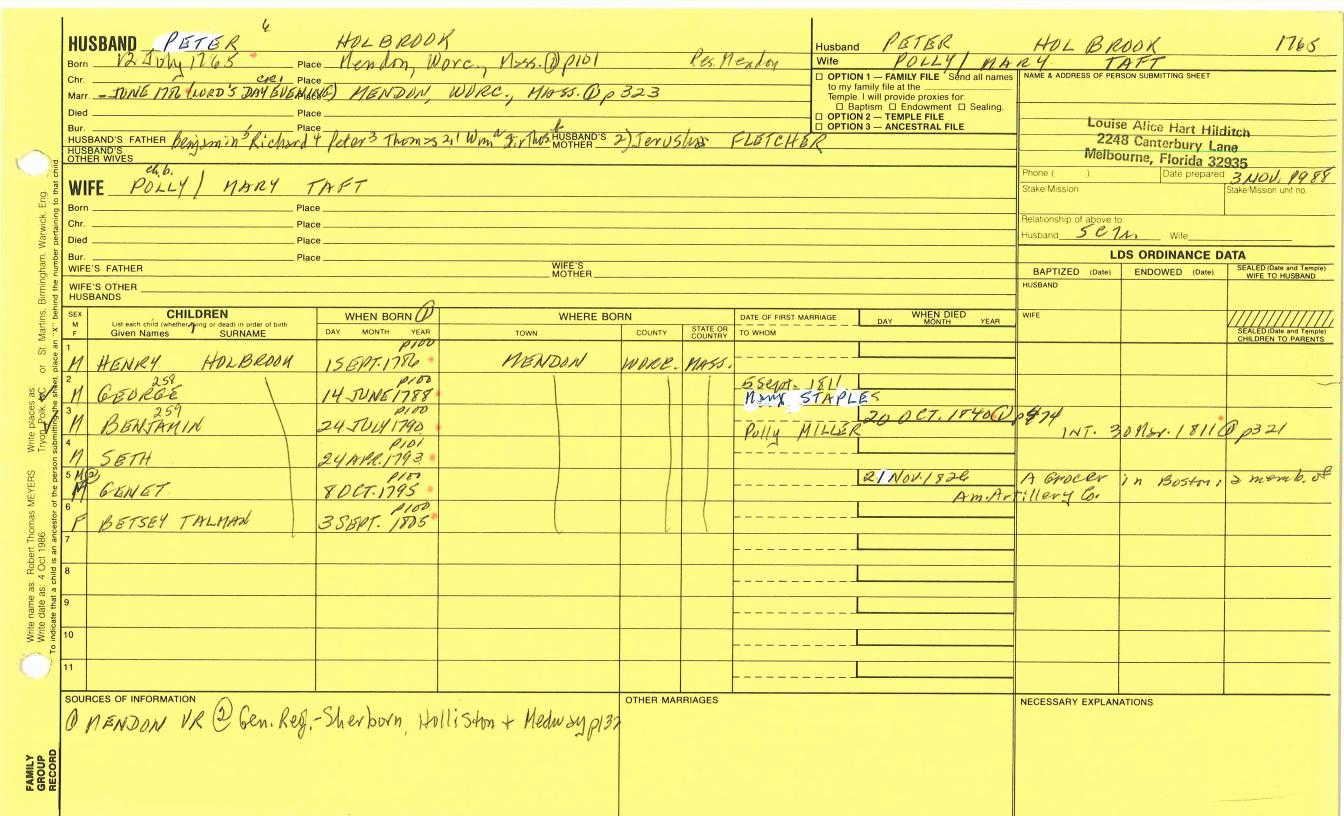 6
HUSBAND PETER HOLBROOK
Born 12 July 1765 Place Mendon, Worc., Mass. ① p101 Res. Mendon
Chr. Place
CR1
Marr. - JUNE 1786 (LORD'S DAY EVENING) Place MENDON, WORC., MASS. ① p323
Died Place
Bur. Place
HUSBAND'S FATHER Benjamin 5 Richard 4 Peter 3 Thomas 2, 1 HUSBAND'S MOTHER 2) Jerusha FLETCHER
HUSBAND'S OTHER WIVES
ch.b.
WIFE POLLY/ MARY TAFT
Born Place
Chr. Place
Died Place
Bur. Place
WIFE'S FATHER WIFE'S MOTHER
WIFE'S OTHER HUSBANDS
Husband PETER HOLBROOK 1765
Wife POLLY/ MARY TAFT
☐ OPTION 1 — FAMILY FILE Send all names
to my family file at the
Temple. I will provide proxies for:
☐ Baptism ☐ Endowment ☐ Sealing.
☐ OPTION 2 — TEMPLE FILE
☐ OPTION 3 — ANCESTRAL FILE
NAME & ADDRESS OF PERSON SUBMITTING SHEET
Louise Alice Hart Hilditch
2248 Canterbury Lane
Melbourne, Florida 32935
Phone ( ) Date prepared 3 NOV. 1988
Stake/Mission Stake/Mission unit no.
Relationship of above to:
Husband 5C7R. Wife
LDS ORDINANCE DATA
BAPTIZED (Date) ENDOWED (Date) SEALED (Date and Temple) WIFE TO HUSBAND
HUSBAND
WIFE
SEALED (Date and Temple) CHILDREN TO PARENTS
SEX M F
CHILDREN
List each child (whether living or dead) in order of birth
Given Names SURNAME
WHEN BORN ①
DAY MONTH YEAR
WHERE BORN
TOWN COUNTY STATE OR COUNTRY
DATE OF FIRST MARRIAGE
TO WHOM
WHEN DIED
DAY MONTH YEAR
p100
1 M HENRY HOLBROOK 1 SEPT. 1786 MENDON WORC. MASS.
258 p100 5 Sept. 1811
2 M GEORGE 14 JUNE 1788 Mary STAPLES
259 p100 20 OCT. 1840 ① p474
3 M BENJAMIN 24 JULY 1790 Polly MILLER INT. 30 Mar. 1811 ① p321
p101
4 M SETH 24 APR. 1793
p100 21 Nov. 1826 A Grocer in Boston; a memb. of
5 M ② M GENET 8 OCT. 1795 Am. Artillery Co.
p100
6 F BETSEY TALMAN 3 SEPT. 1805
7
8
9
10
11
SOURCES OF INFORMATION
① MENDON VR ② Gen. Reg.-Sherborn, Holliston + Medway p137
OTHER MARRIAGES
NECESSARY EXPLANATIONS
Write name as: Robert Thomas MEYERS Write places as: Tryon, Polk, NC or St. Martins, Birmingham, Warwick, Eng.
Write date as: 4 Oct 1986
To indicate that a child is an ancestor of the person submitting the sheet, place an "X" behind the number pertaining to that child
FAMILY
GROUP
RECORD